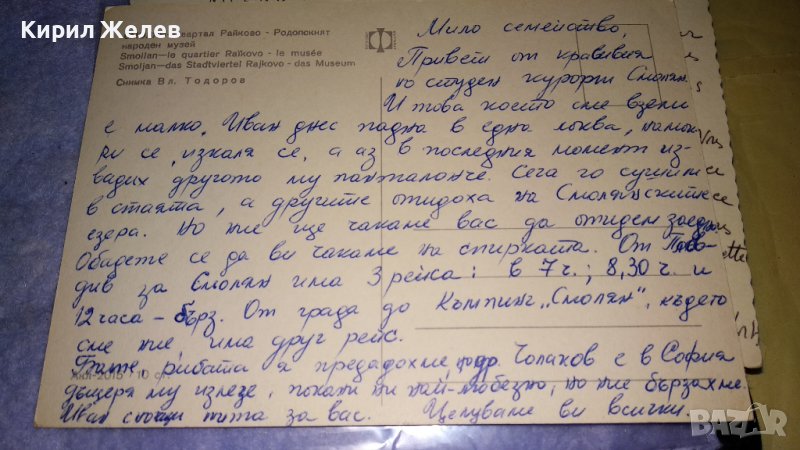 Кирил Желев
квартал Райково - Родопският
народен музей
Smolian—le quartier Raïkovo - le musée
Smoljan—das Stadtviertel Rajkovo - das Museum
Снимка Вл. Тодоров
Мило семейство,
Привети от красивия
но студен курорт Смолян.
И това което сме взели
е малко. Иван днес падна в една локва, намок-
ри се, изкаля се, а аз в последния момент из-
вадих другото му панталонче. Сега го сушиме
в стаята, а другите отидоха на Смолянските
езера. Но ние ще чакаме вас да отидем заедно.
Обадете се да ви чакаме на спирката. От Плов-
див за Смолян има 3 рейса: в 7 ч.; 8,30 ч. и
12 часа - бърз. От града до Къмпинг „Смолян", където
сме ние има друг рейс.
Бате, рибата я предадохме, др Чолаков е в София
дъщеря му излезе, покани ни най-любезно, но ние бързахме.
Иван все пита за вас. Целуваме ви всички.
BAZAR